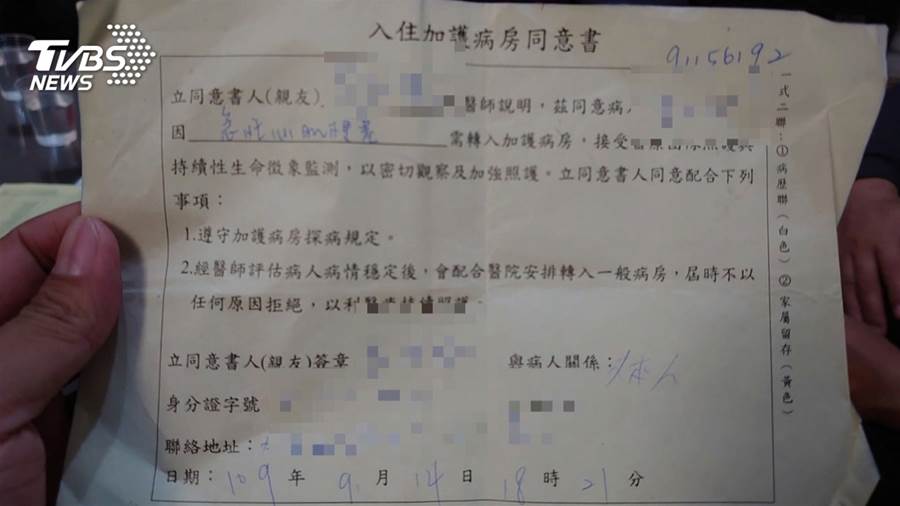 TVBS
NEWS
入住加護病房同意書
91156192
立同意書人(親友) 醫師說明，茲同意病
因 急性心肌梗塞 需轉入加護病房，接受
持續性生命徵象監測，以密切觀察及加強照護。立同意書人同意配合下列
事項：
1.遵守加護病房探病規定。
2.經醫師評估病人病情穩定後，會配合醫院安排轉入一般病房，屆時不以
任何原因拒絕，以利
立同意書人(親友)簽章 與病人關係：本人
身分證字號
聯絡地址：
日期：109年 9月 14日 18時 21分
一式二聯：①病歷聯（白色）②家屬留存（黃色）